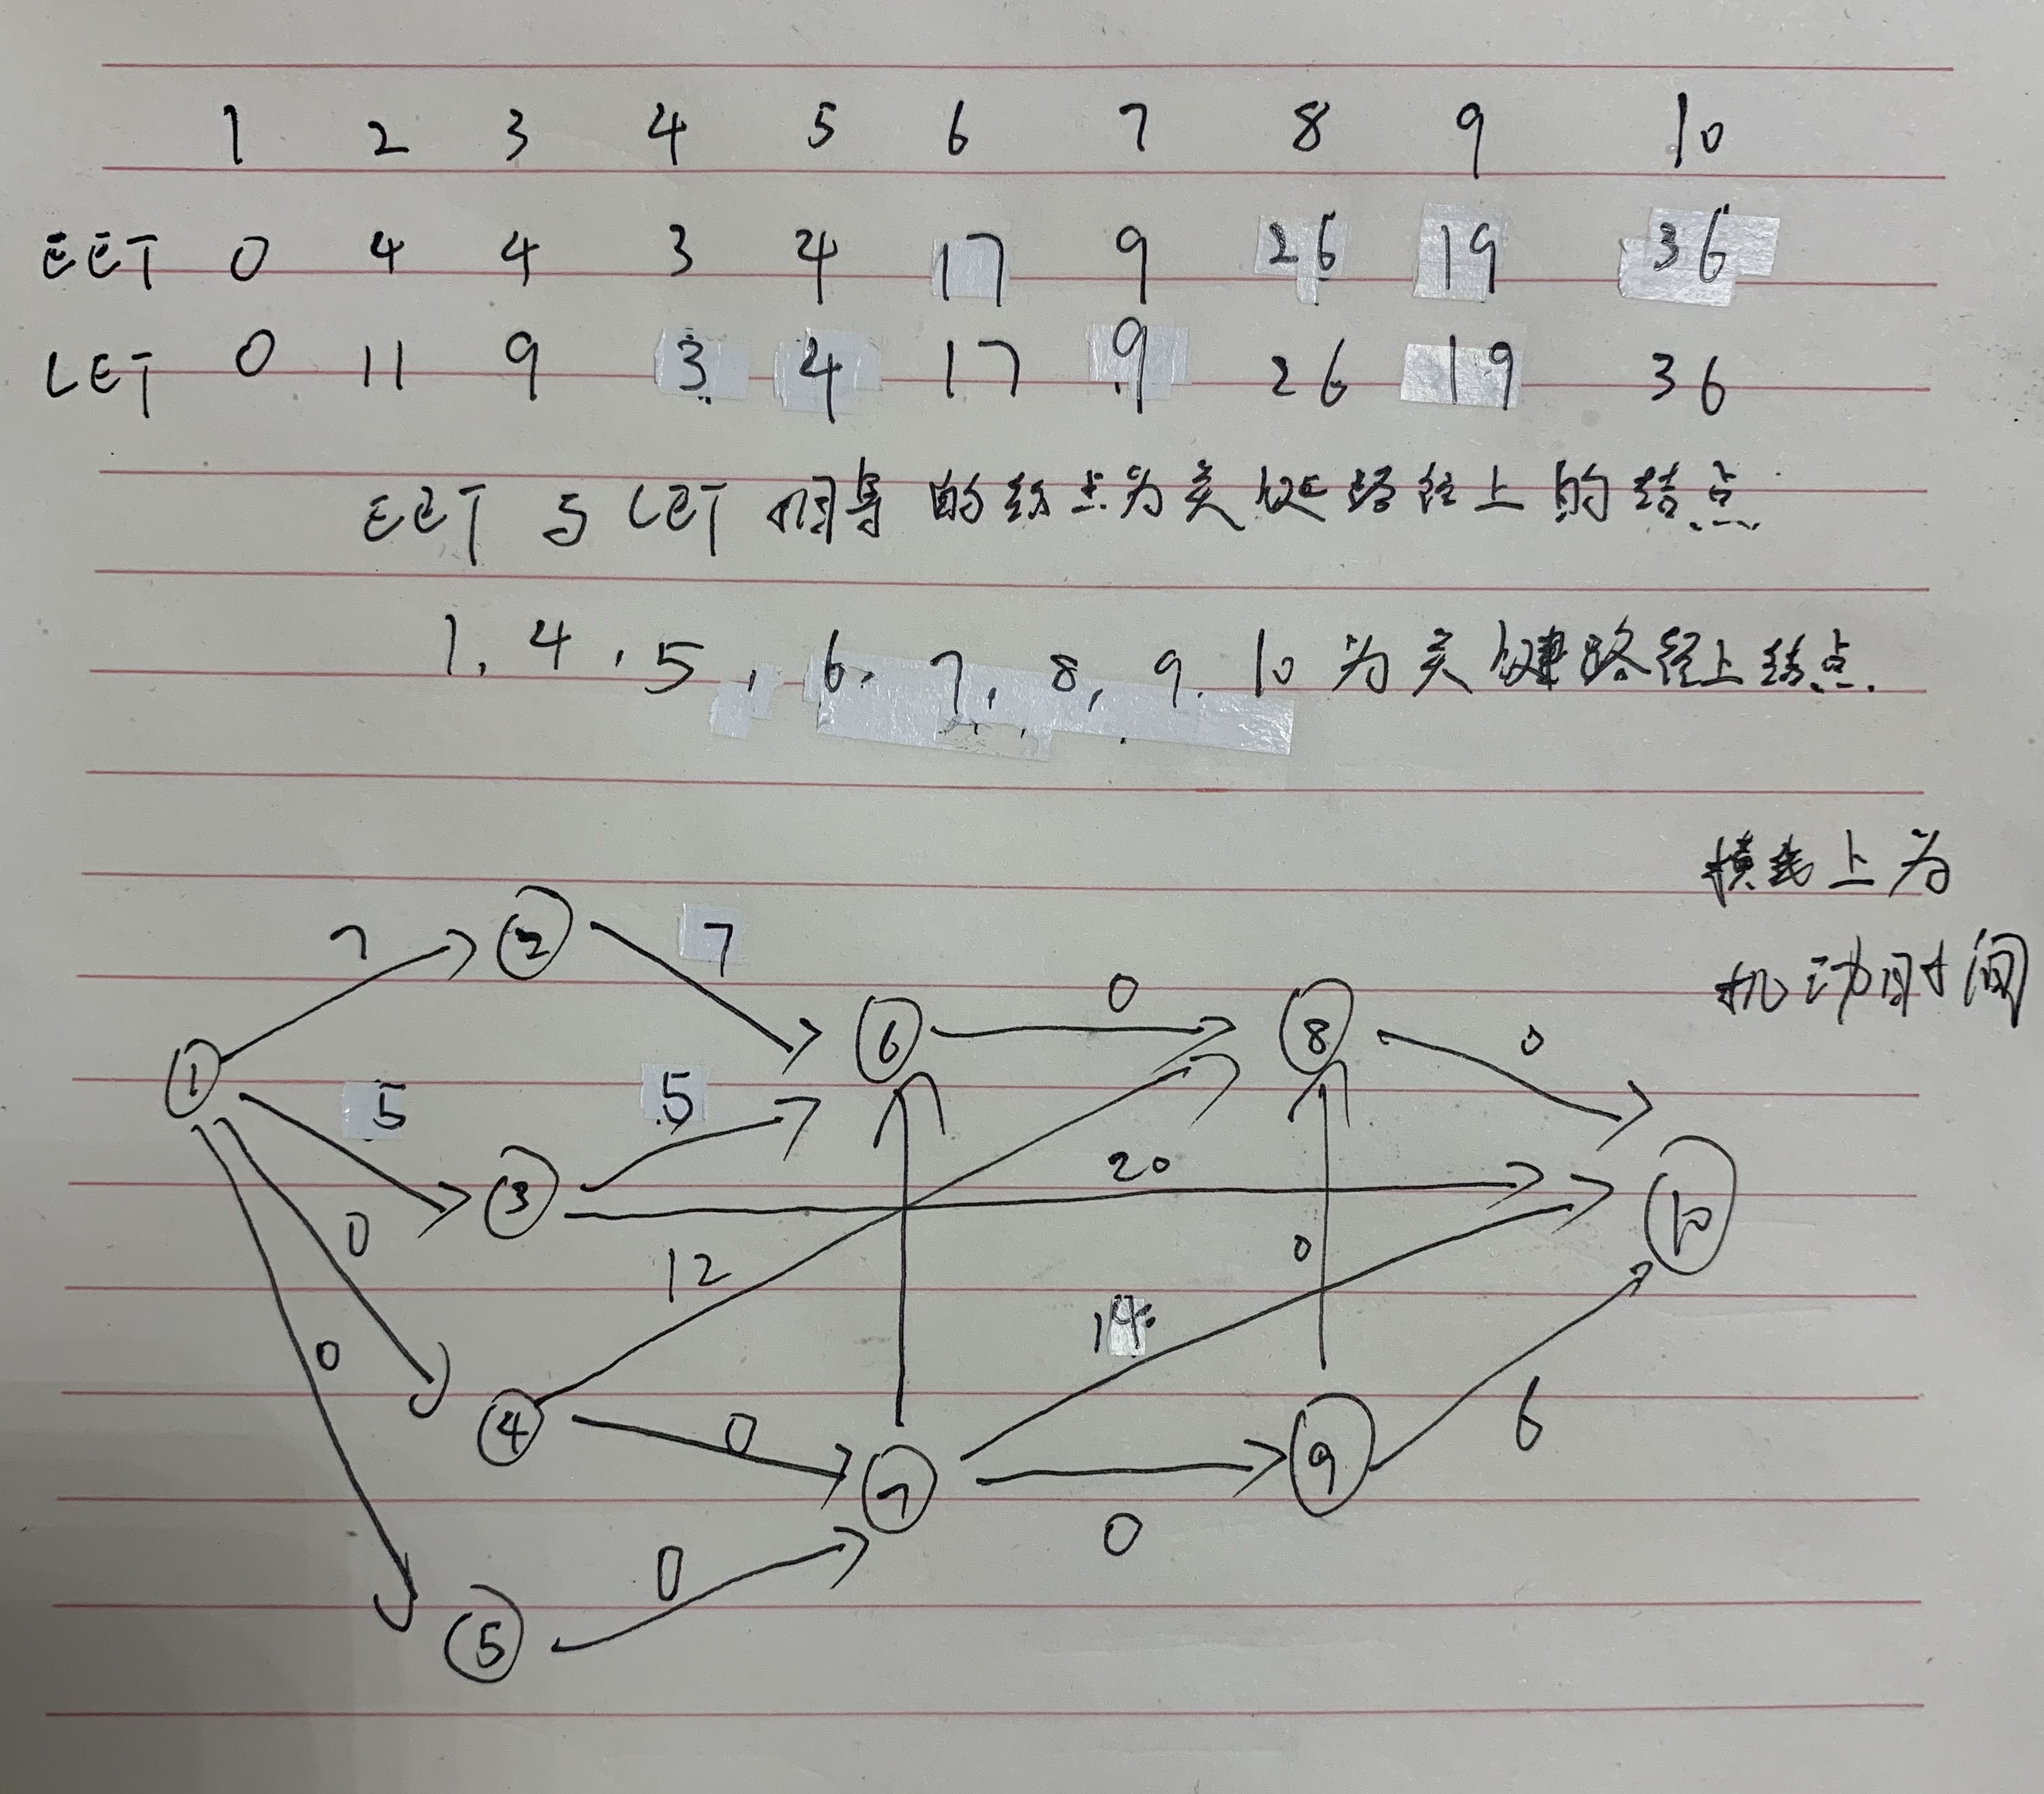 1 2 3 4 5 6 7 8 9 10
EET 0 4 4 3 4 17 9 26 19 36
LET 0 11 9 3 4 17 9 26 19 36
EET 与 LET 相等的结点为关键路径上的结点.
1, 4, 5, 6, 7, 8, 9, 10 为关键路径上结点.
横线上为
机动时间
7 ② 7
① 5 5 ⑥ 0 ⑧ 0
③ 20
0 12 0 ⑩
0 14
④ 0 ⑦ 0 ⑨ 6
0
⑤